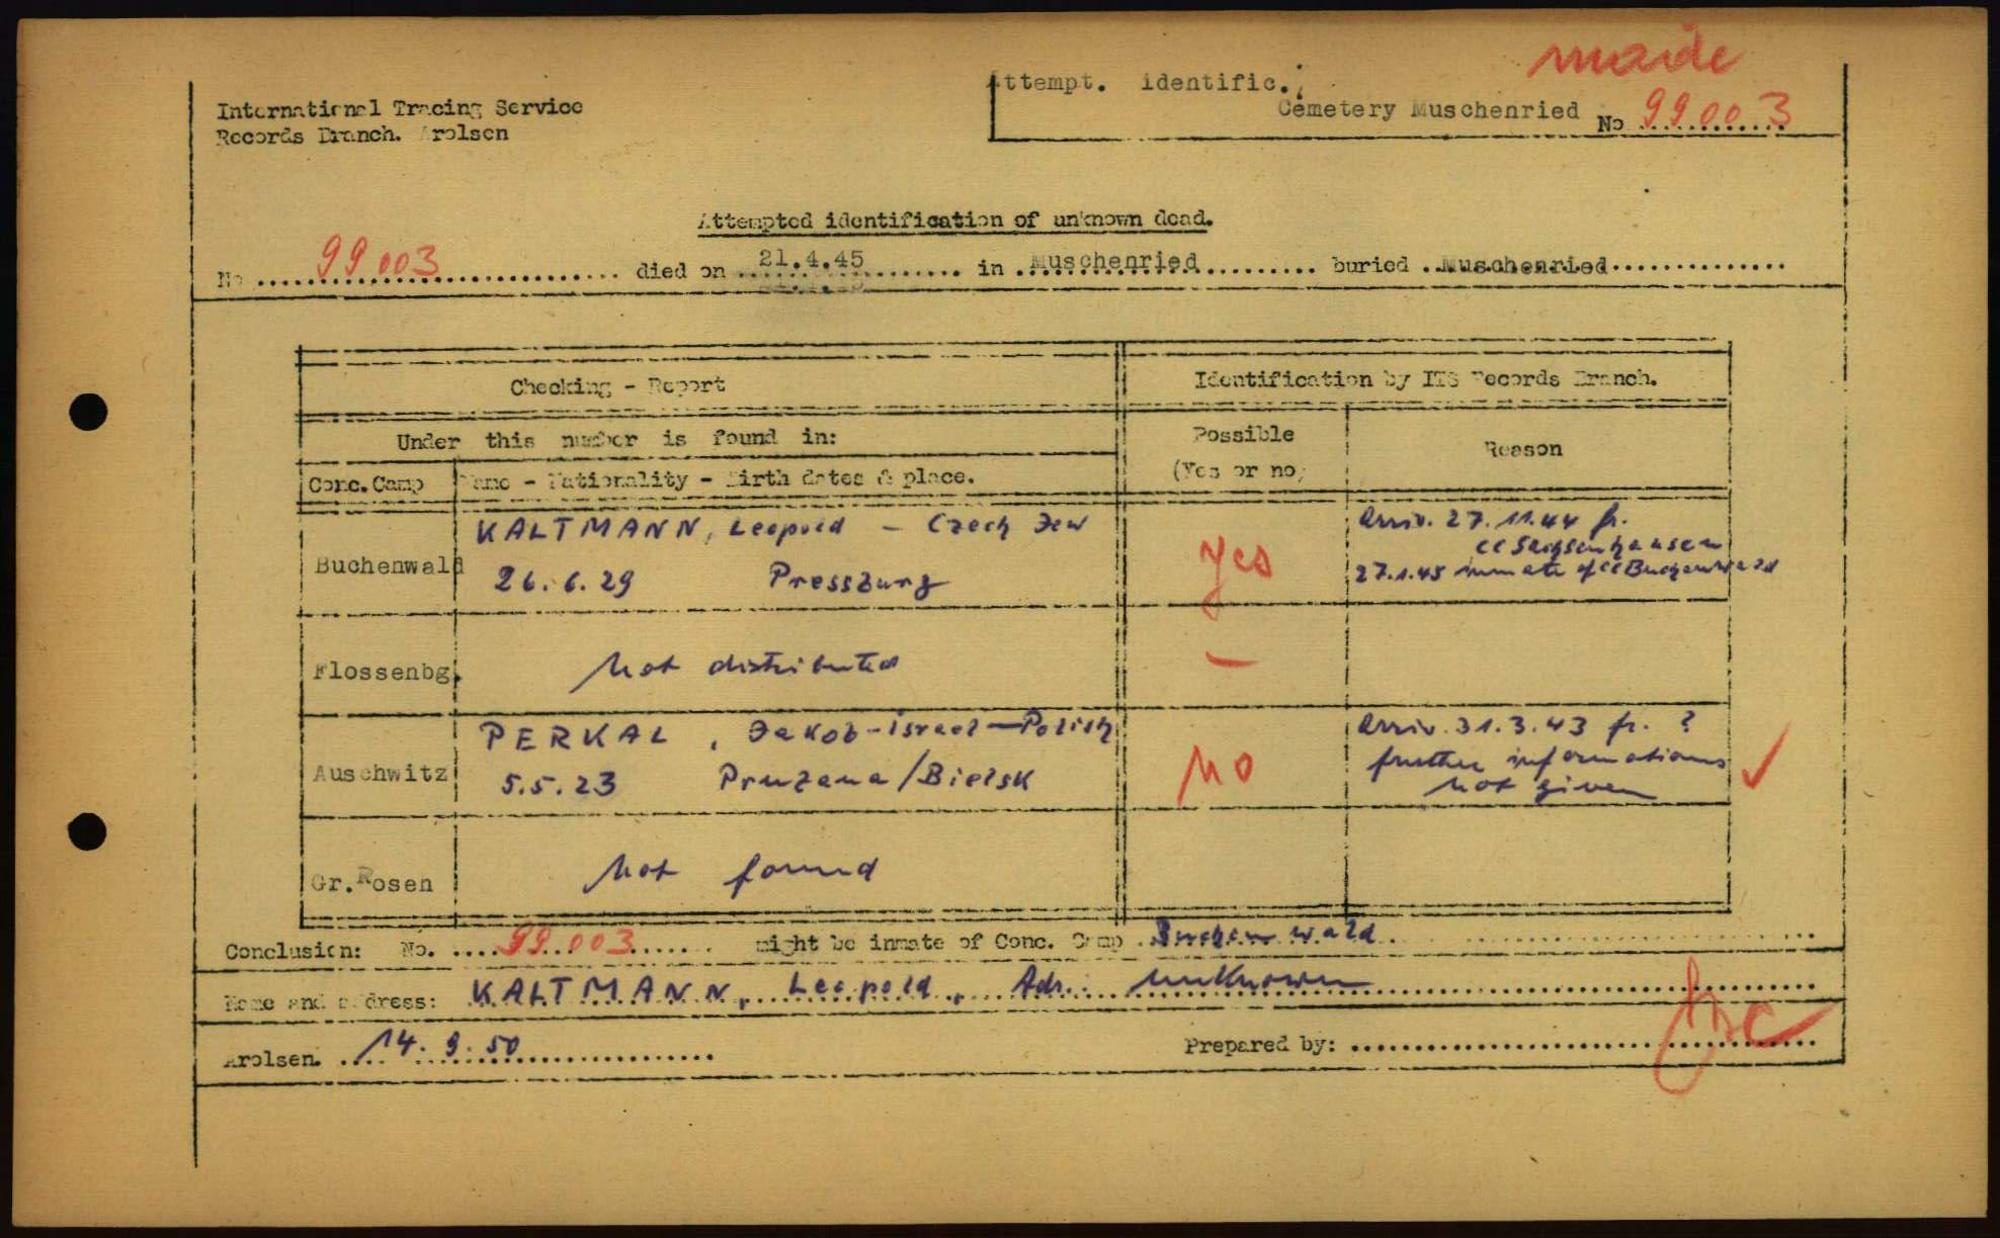 made
Attempt. identific.;
International Tracing Service
Cemetery Muschenried No 99003
Records Branch. Arolsen
Attempted identification of unknown dead.
No 99003 died on 21.4.45 in Muschenried buried Muschenried
Checking - Report
Identification by ITS Records Branch.
Under this number is found in:
Possible
(Yes or no)
Reason
Conc.Camp
Name - Nationality - Birth dates & place.
Buchenwald
KALTMANN, Leopold - Czech Jew
26.6.29 Pressburg
yes
Arriv. 27.11.44 fr.
CC Sachsenhausen
27.1.45 inmate of CC Buchenwald
Flossenbg.
not distributed
-
Auschwitz
PERKAL, Jakob-Israel-Polish
5.5.23 Pruzana/Bielsk
no
Arriv. 31.3.43 fr. ?
further informations
not given
Gr.Rosen
not found
Conclusion: No. 99.003 might be inmate of Conc. Camp Buchenwald
Name and address: KALTMANN, Leopold, Adr.: unknown
Arolsen. 14.9.50
Prepared by: